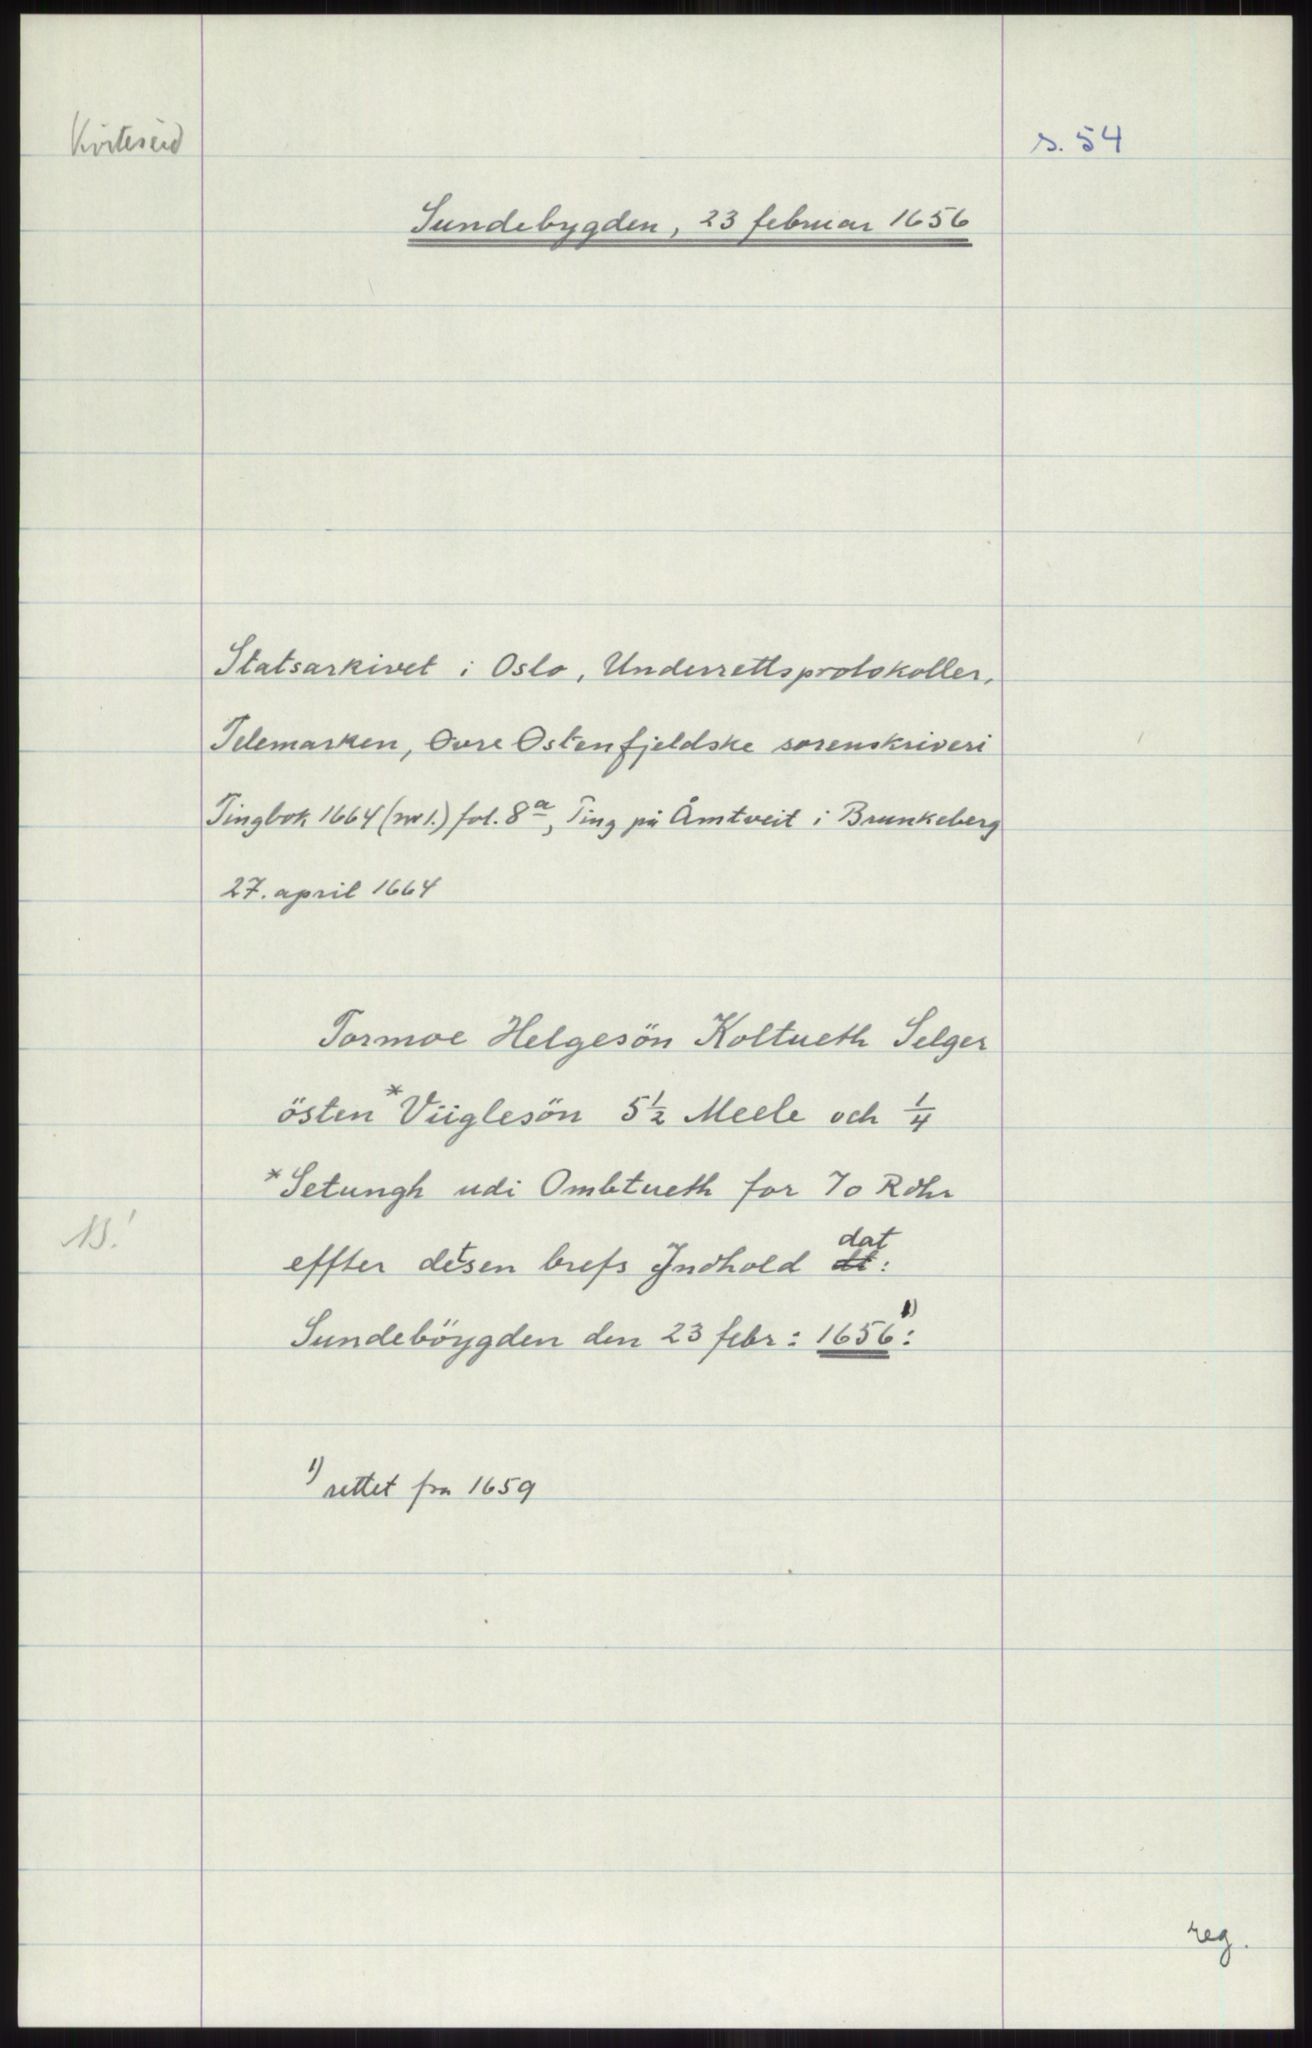 Kviteseid
s. 54
Sundebygden, 23 februar 1656
Statsarkivet i Oslo, Underrettsprotokoller,
Telemarken, Øvre Østenfjeldske sorenskriveri
Tingbok 1664 (nr 1.) fol. 8a, Ting på Åmtveit i Brunkeberg
27. april 1664
Tormoe Helgesön Koltueth Selger
östen *Viiglesön 5½ Meele och ¼
*Setungh udi Ombtueth for 70 Rdhr
effter detsen brefs Jndhold dat:
Sundeböygden den 23 febr: 1656 1):
1) rettet fra 1659
reg.